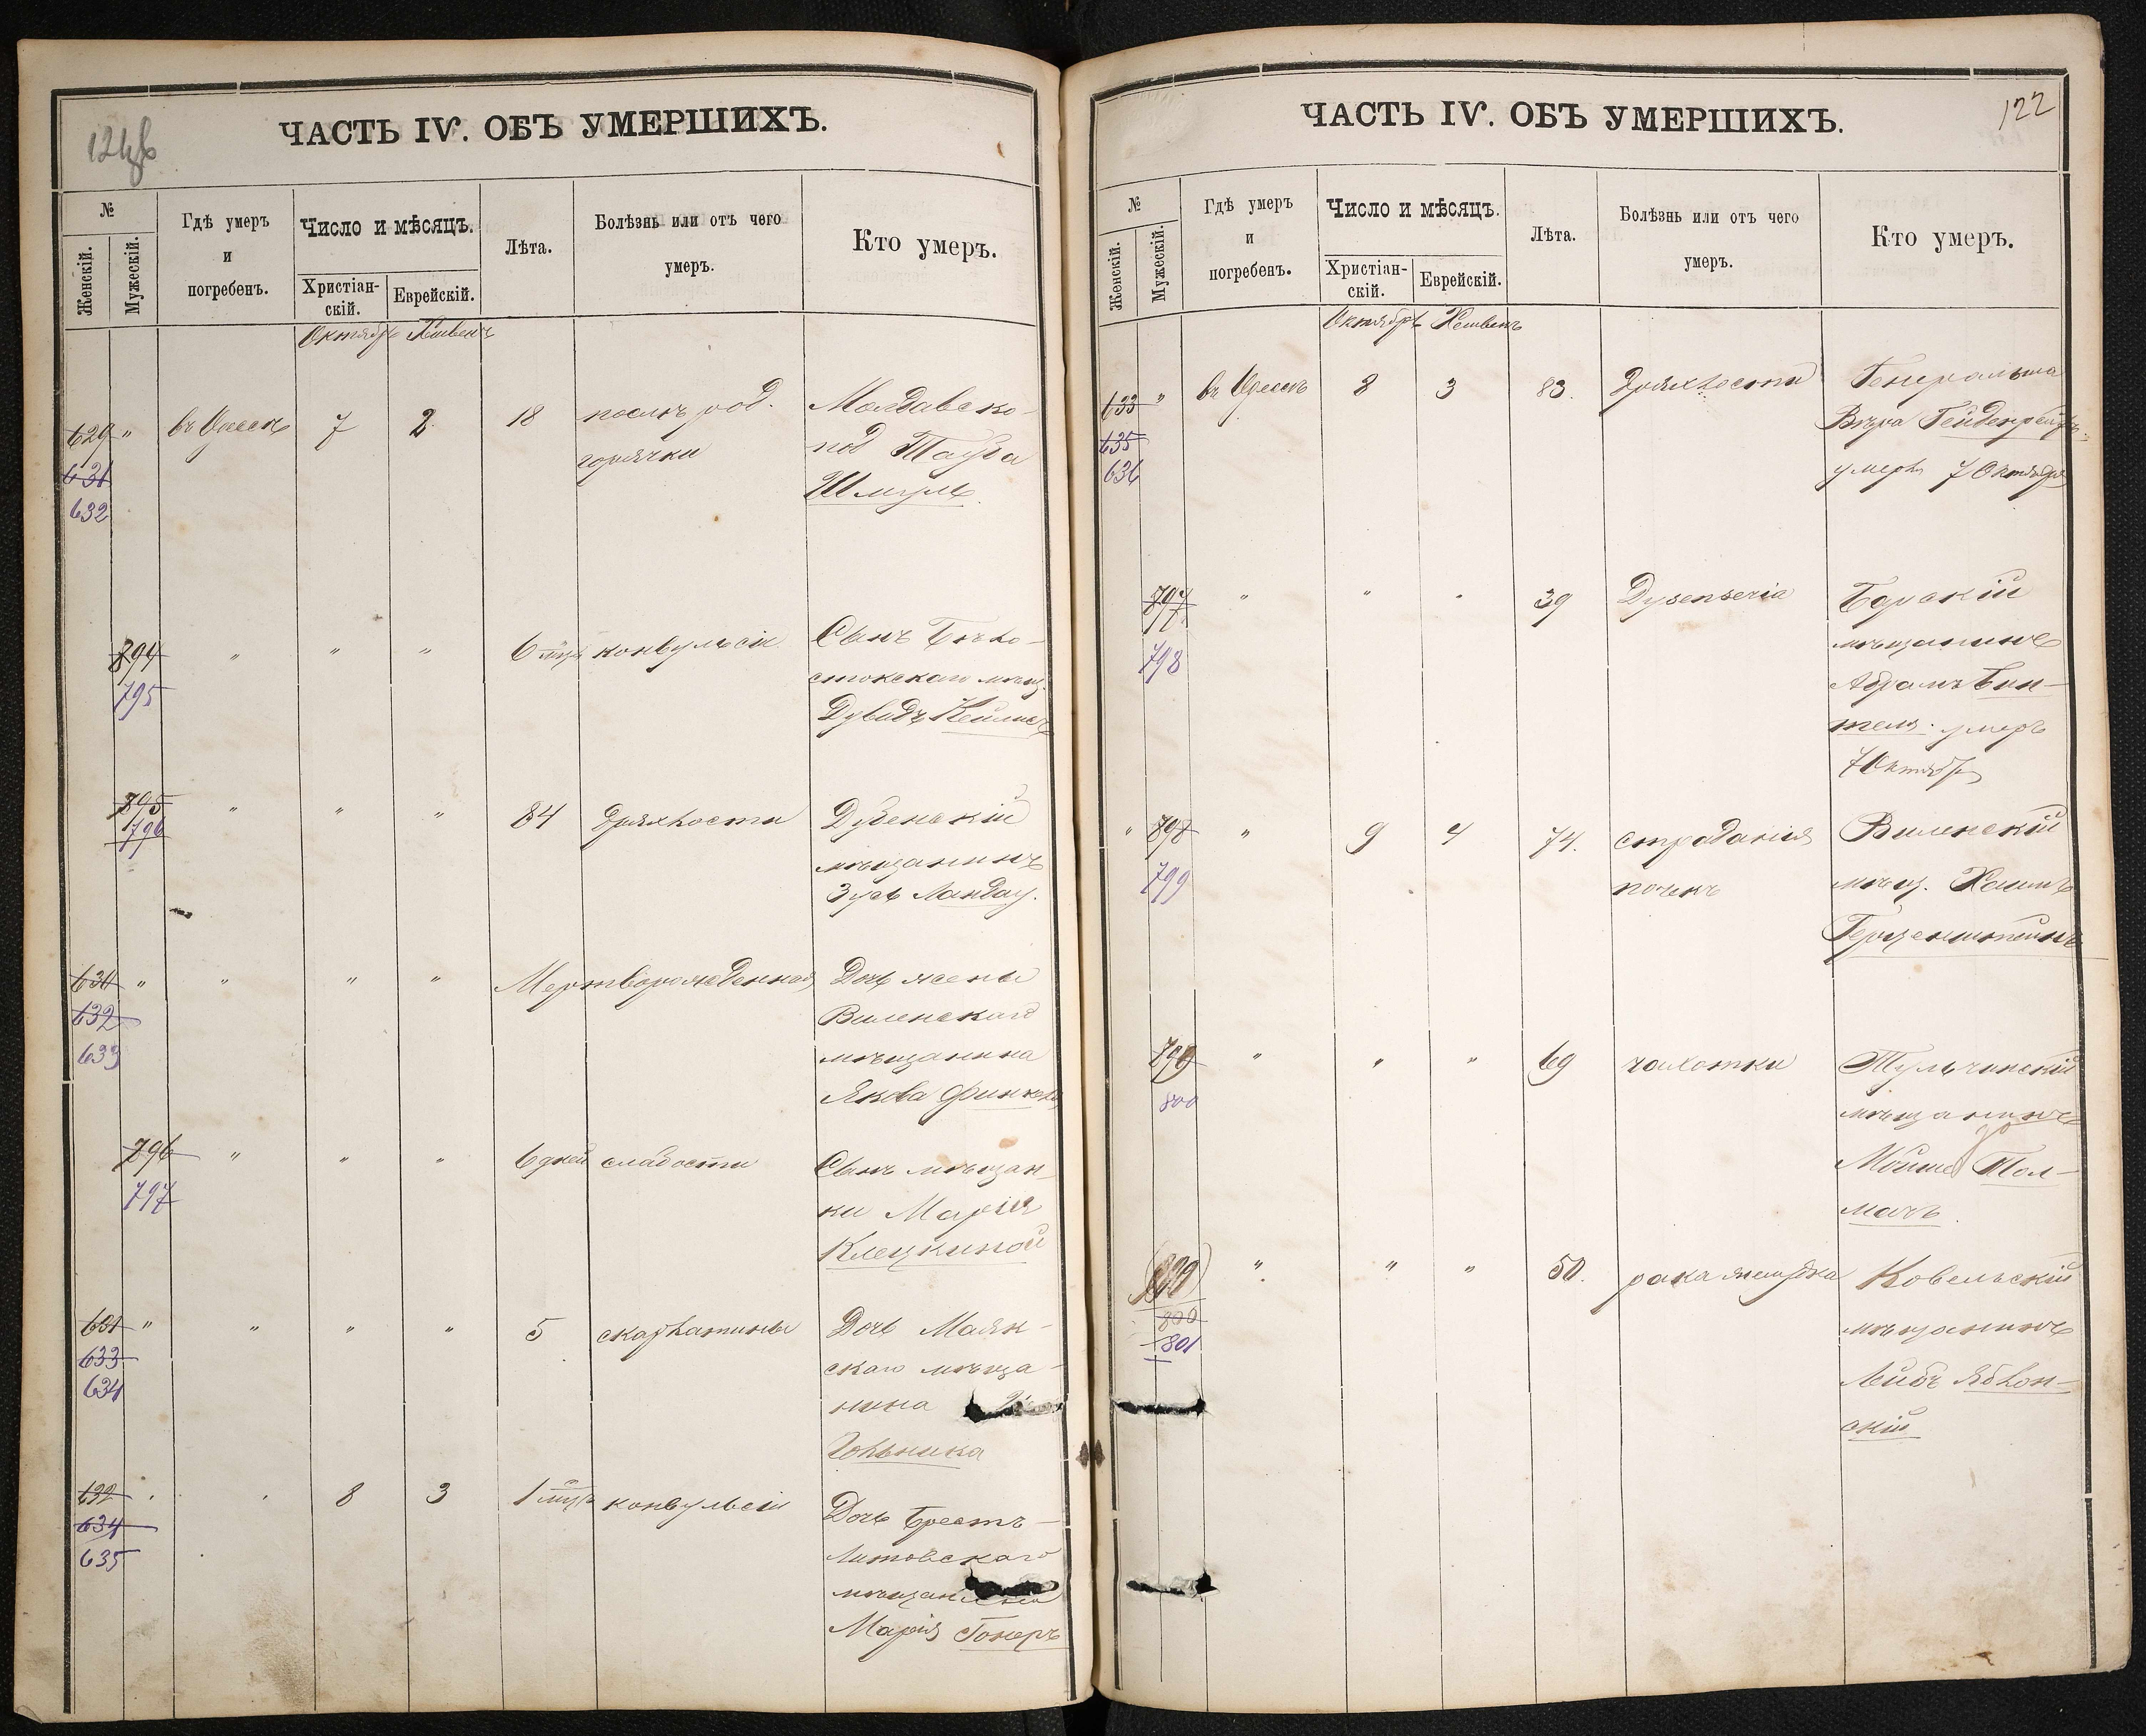 ЧАСТЬ IV. ОБЪ УМЕРШИХЪ.
№
Женскій.
Мужескій.
Гдѣ умеръ
и
погребенъ.
Число и мѣсяцъ.
Христіан-
скій.
Еврейскій.
Лѣта.
Болѣзнь или отъ чего
умеръ.
Кто умеръ.
Октябрь Хешвенъ
629 " въ Одессѣ 7 2 18 послѣ род. Молдавско-
631 горячки под Тауба
632 Шмуль
794 " " " 6 мц. конвульсіи Сынъ Бѣло-
795 стокскаго мѣщ.
Дувидъ
795 " " " 84 дряхлости Дубенскій
796 мѣщанинъ
Зусь Ландау.
630 " " " " Мертворожденная Дочь жены
632 Виленскаго
633 мѣщанина
Якова
796 " " " 6 дней слабости Сынъ мѣщан-
797 ки Марія
Клецкиной
631 " " " " 5 скарлатины Дочь Маяк-
633 скаго мѣща-
634 нина
Гольника
632 8 3 1 мцъ конвульсіи Дочь Брестъ-
634 Литовскаго
635 мѣщанина
Марія Гонеръ
ЧАСТЬ IV. ОБЪ УМЕРШИХЪ.
122
№
Женскій.
Мужескій.
Гдѣ умеръ
и
погребенъ.
Число и мѣсяцъ.
Христіан-
скій.
Еврейскій.
Лѣта.
Болѣзнь или отъ чего
умеръ.
Кто умеръ.
Октябрь Хешвенъ
633 " въ Одессѣ 8 3 83. дряхлости Генеральша
635 Вѣра
636 умерла 7 Октября
797 " " " 39 Dysenteria Барскій
798 мѣщанинъ
Абрамъ Бин-
тель. умеръ
7 Октября
" 798 " 9 4 74. страданія Виленскій
799 почекъ мѣщ. Хаимъ
Герценштейнъ
799 " " " 69 чахотки Тульчинскій
800 мѣщанинъ
Мойше Тол-
мачъ
800 " " " 50. рака желудка Ковельскій
801 мѣщанинъ
Лейбъ Яблон-
скій